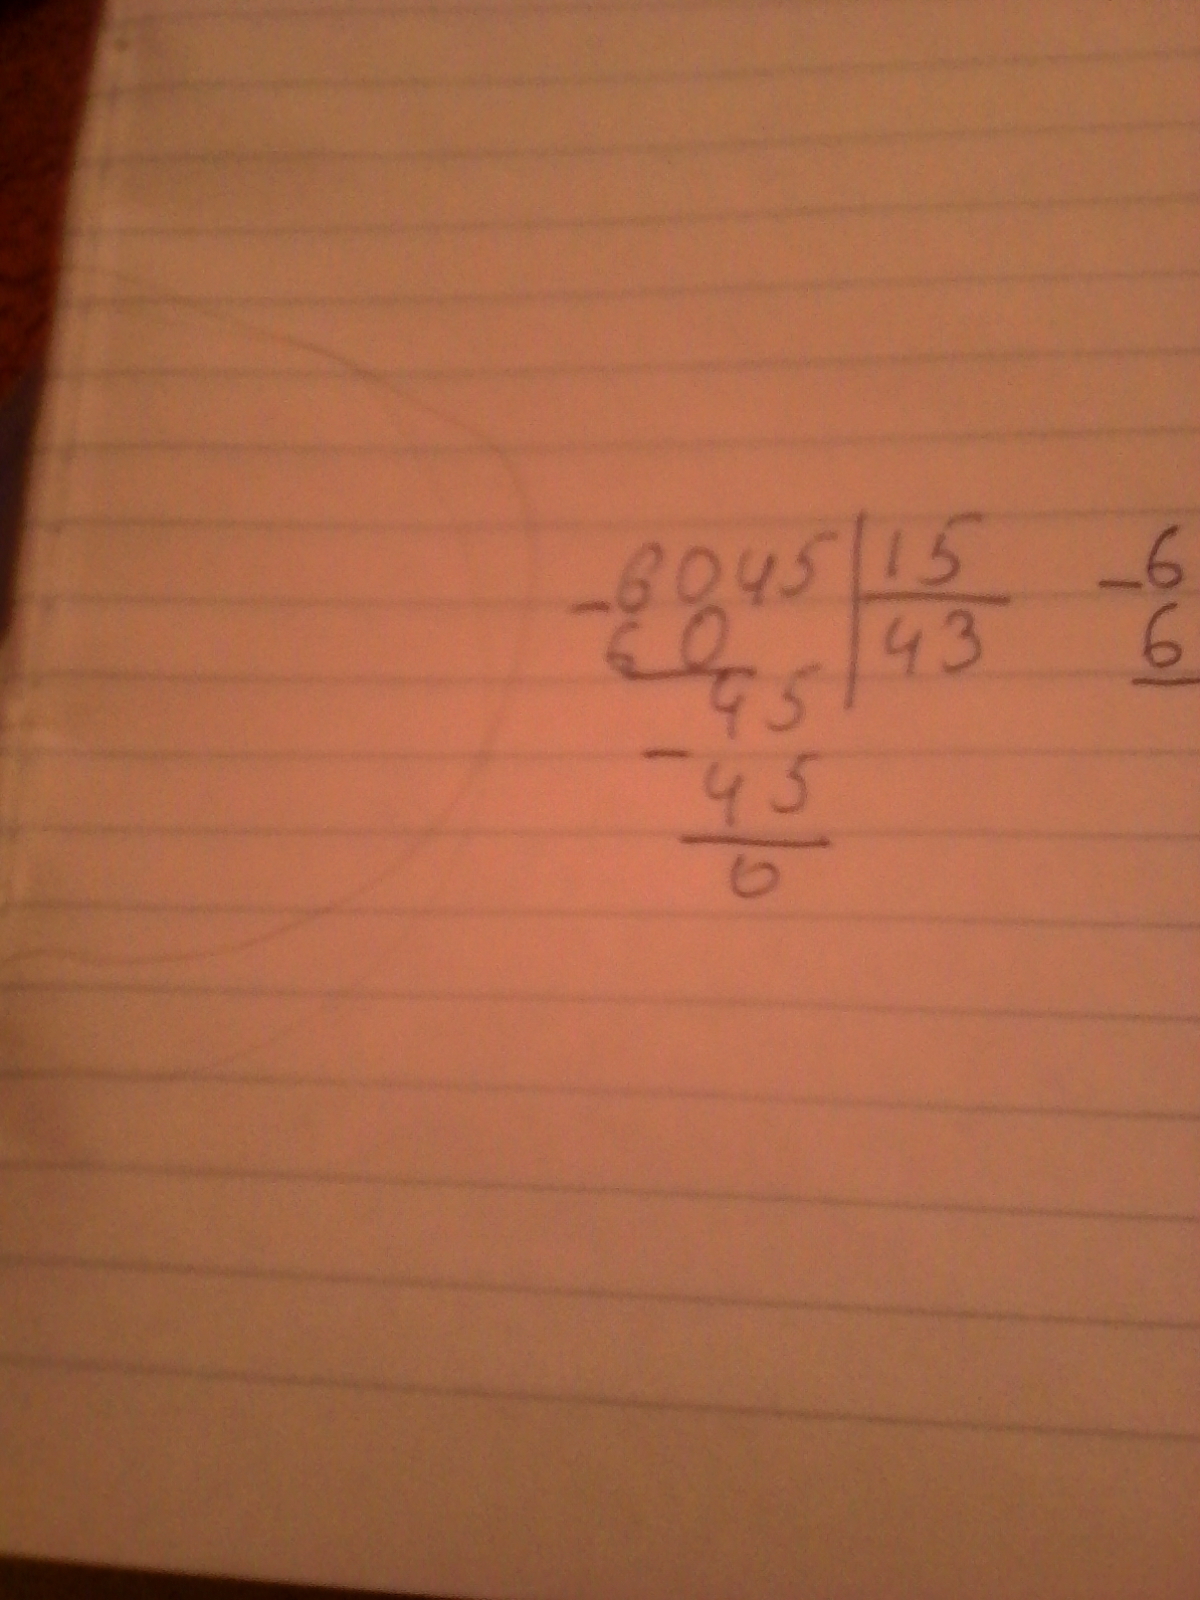 -6045 | 15
60 43
45
-45
0
-6
6